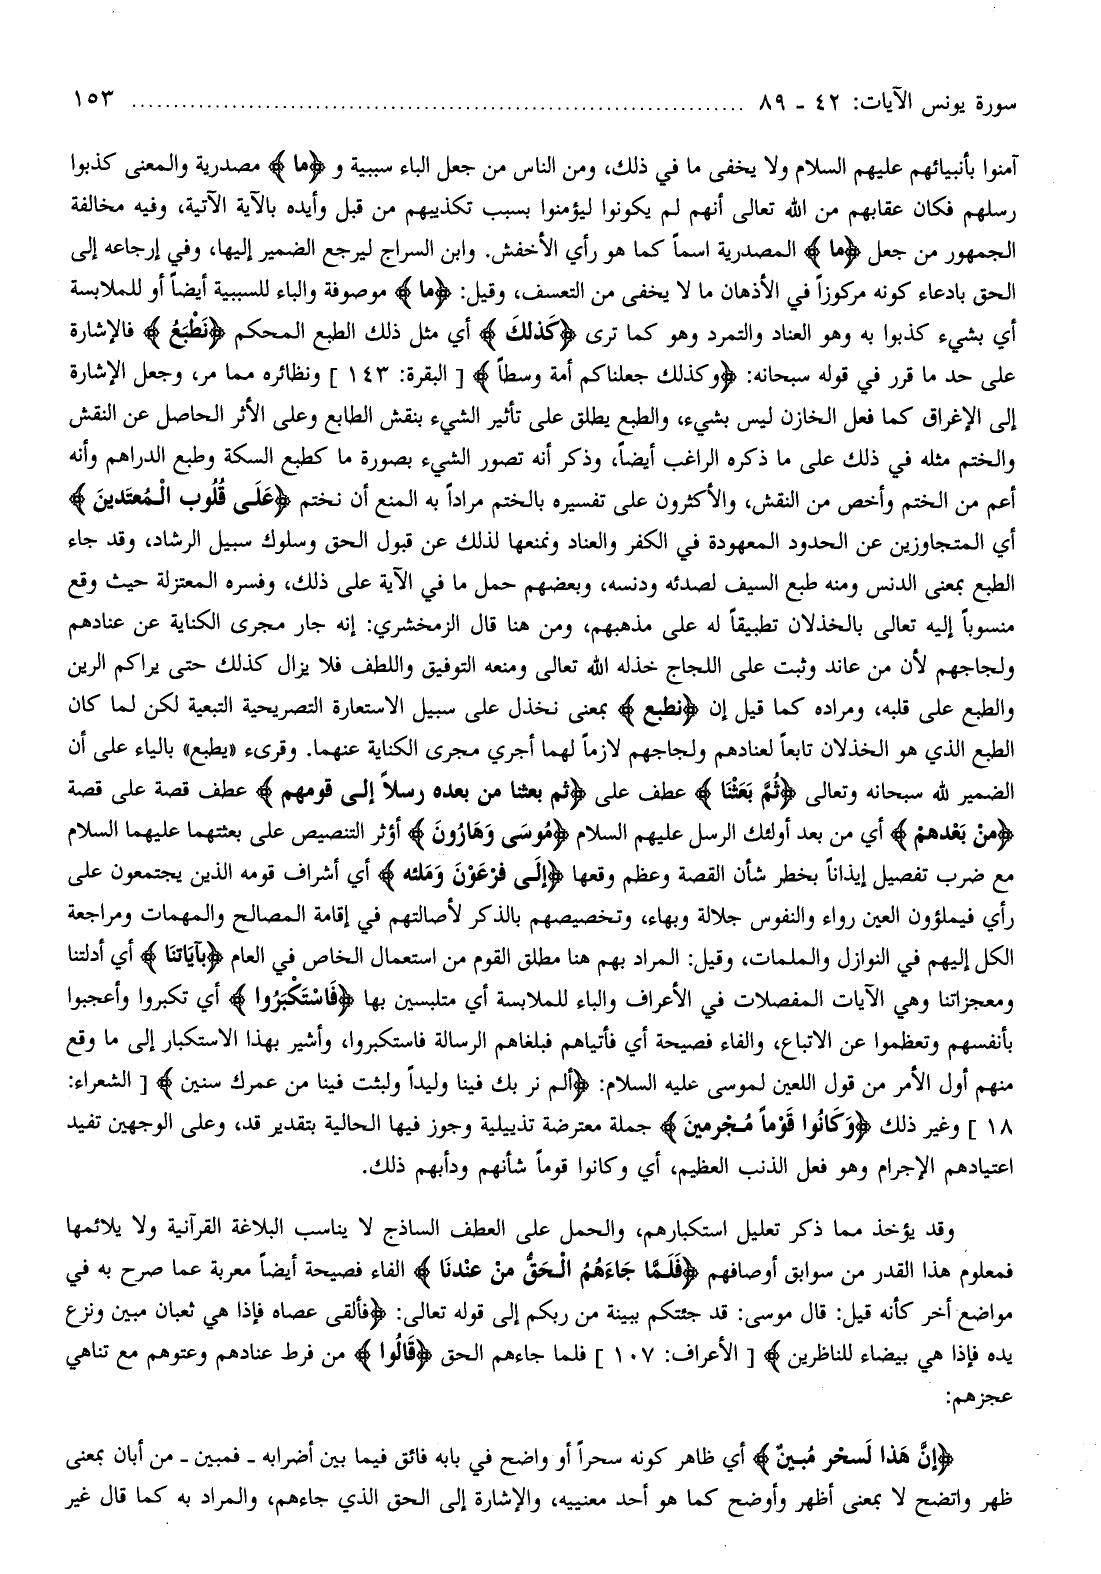 سورة يونس الآيات: ٤٢ - ٨٩ ........................................................................ ١٥٣
آمنوا بأنبيائهم عليهم السلام ولا يخفى ما في ذلك، ومن الناس من جعل الباء سببية و ﴿ما﴾ مصدرية والمعنى كذبوا
رسلهم فكان عقابهم من الله تعالى أنهم لم يكونوا ليؤمنوا بسبب تكذيبهم من قبل وأيده بالآية الآتية، وفيه مخالفة
الجمهور من جعل ﴿ما﴾ المصدرية اسماً كما هو رأي الأخفش. وابن السراج ليرجع الضمير إليها، وفي إرجاعه إلى
الحق بادعاء كونه مركوزاً في الأذهان ما لا يخفى من التعسف، وقيل: ﴿ما﴾ موصوفة والباء للسببية أيضاً أو للملابسة
أي بشيء كذبوا به وهو العناد والتمرد وهو كما ترى ﴿كَذلكَ﴾ أي مثل ذلك الطبع المحكم ﴿نَطْبَعُ﴾ فالإشارة
على حد ما قرر في قوله سبحانه: ﴿وكذلك جعلناكم أمة وسطاً﴾ [ البقرة: ١٤٣ ] ونظائره مما مر، وجعل الإشارة
إلى الإغراق كما فعل الخازن ليس بشيء، والطبع يطلق على تأثير الشيء بنقش الطابع وعلى الأثر الحاصل عن النقش
والختم مثله في ذلك على ما ذكره الراغب أيضاً، وذكر أنه تصور الشيء بصورة ما كطبع السكة وطبع الدراهم وأنه
أعم من الختم وأخص من النقش، والأكثرون على تفسيره بالختم مراداً به المنع أن نختم ﴿عَلَى قُلُوب الْمُعتَدينَ﴾
أي المتجاوزين عن الحدود المعهودة في الكفر والعناد ونمنعها لذلك عن قبول الحق وسلوك سبيل الرشاد، وقد جاء
الطبع بمعنى الدنس ومنه طبع السيف لصدئه ودنسه، وبعضهم حمل ما في الآية على ذلك، وفسره المعتزلة حيث وقع
منسوباً إليه تعالى بالخذلان تطبيقاً له على مذهبهم، ومن هنا قال الزمخشري: إنه جار مجرى الكناية عن عنادهم
ولجاجهم لأن من عاند وثبت على اللجاج خذله الله تعالى ومنعه التوفيق واللطف فلا يزال كذلك حتى يراكم الرين
والطبع على قلبه، ومراده كما قيل إن ﴿نطبع﴾ بمعنى نخذل على سبيل الاستعارة التصريحية التبعية لكن لما كان
الطبع الذي هو الخذلان تابعاً لعنادهم ولجاجهم لازماً لهما أجري مجرى الكناية عنهما. وقرىء «يطبع» بالياء على أن
الضمير لله سبحانه وتعالى ﴿ثُمَّ بَعَثْنَا﴾ عطف على ﴿ثم بعثنا من بعده رسلاً إلى قومهم﴾ عطف قصة على قصة
﴿منْ بَعْدهمْ﴾ أي من بعد أولئك الرسل عليهم السلام ﴿مُوسَى وَهَارُونَ﴾ أؤثر التنصيص على بعثتهما عليهما السلام
مع ضرب تفصيل إيذاناً بخطر شأن القصة وعظم وقعها ﴿إلَى فرْعَوْنَ وَمَلئه﴾ أي أشراف قومه الذين يجتمعون على
رأي فيملؤون العين رواء والنفوس جلالة وبهاء، وتخصيصهم بالذكر لأصالتهم في إقامة المصالح والمهمات ومراجعة
الكل إليهم في النوازل والملمات، وقيل: المراد بهم هنا مطلق القوم من استعمال الخاص في العام ﴿بآيَاتنَا﴾ أي أدلتنا
ومعجزاتنا وهي الآيات المفصلات في الأعراف والباء للملابسة أي متلبسين بها ﴿فَاسْتَكْبَرُوا﴾ أي تكبروا وأعجبوا
بأنفسهم وتعظموا عن الاتباع، والفاء فصيحة أي فأتياهم فبلغاهم الرسالة فاستكبروا، وأشير بهذا الاستكبار إلى ما وقع
منهم أول الأمر من قول اللعين لموسى عليه السلام: ﴿ألم نر بك فينا وليداً ولبثت فينا من عمرك سنين﴾ [ الشعراء:
١٨ ] وغير ذلك ﴿وَكَانُوا قَوْماً مُجْرمينَ﴾ جملة معترضة تذييلية وجوز فيها الحالية بتقدير قد، وعلى الوجهين تفيد
اعتيادهم الإجرام وهو فعل الذنب العظيم، أي وكانوا قوماً شأنهم ودأبهم ذلك.
وقد يؤخذ مما ذكر تعليل استكبارهم، والحمل على العطف الساذج لا يناسب البلاغة القرآنية ولا يلائمها
فمعلوم هذا القدر من سوابق أوصافهم ﴿فَلَمَّا جَاءَهُمُ الْحَقُّ منْ عنْدنَا﴾ الفاء فصيحة أيضاً معربة عما صرح به في
مواضع أخر كأنه قيل: قال موسى: قد جئتكم ببينة من ربكم إلى قوله تعالى: ﴿فألقى عصاه فإذا هي ثعبان مبين ونزع
يده فإذا هي بيضاء للناظرين﴾ [ الأعراف: ١٠٧ ] فلما جاءهم الحق ﴿قَالُوا﴾ من فرط عنادهم وعتوهم مع تناهي
عجزهم:
﴿إنَّ هَذا لَسحْر مُبينٌ﴾ أي ظاهر كونه سحراً أو واضح في بابه فائق فيما بين أضرابه - فمبين - من أبان بمعنى
ظهر واتضح لا بمعنى أظهر وأوضح كما هو أحد معنييه، والإشارة إلى الحق الذي جاءهم، والمراد به كما قال غير